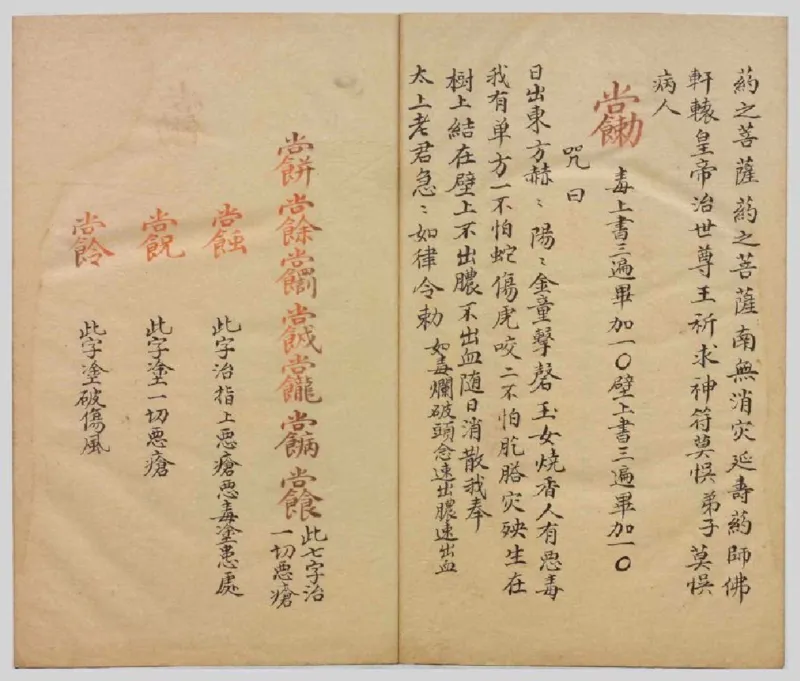 葯之菩薩葯之菩薩南無消灾延壽葯師佛
軒轅皇帝治世尊王祈求神符莫悞弟子莫悞
病人
毒上書三遍畢加一〇壁上書三遍畢加一〇
咒曰
日出東方赫〻陽〻金童擊磬玉女燒香人有恶毒
我有单方一不怕蛇傷虎咬二不怕灾殃生在
樹上結在壁上不出膿不出血随日消散我奉
太上老君急〻如律令勅 如毒爛破頭念速出膿速出血
此七字治
一切恶瘡
此字治指上恶瘡恶毒塗患處
此字塗一切恶瘡
此字塗破傷風